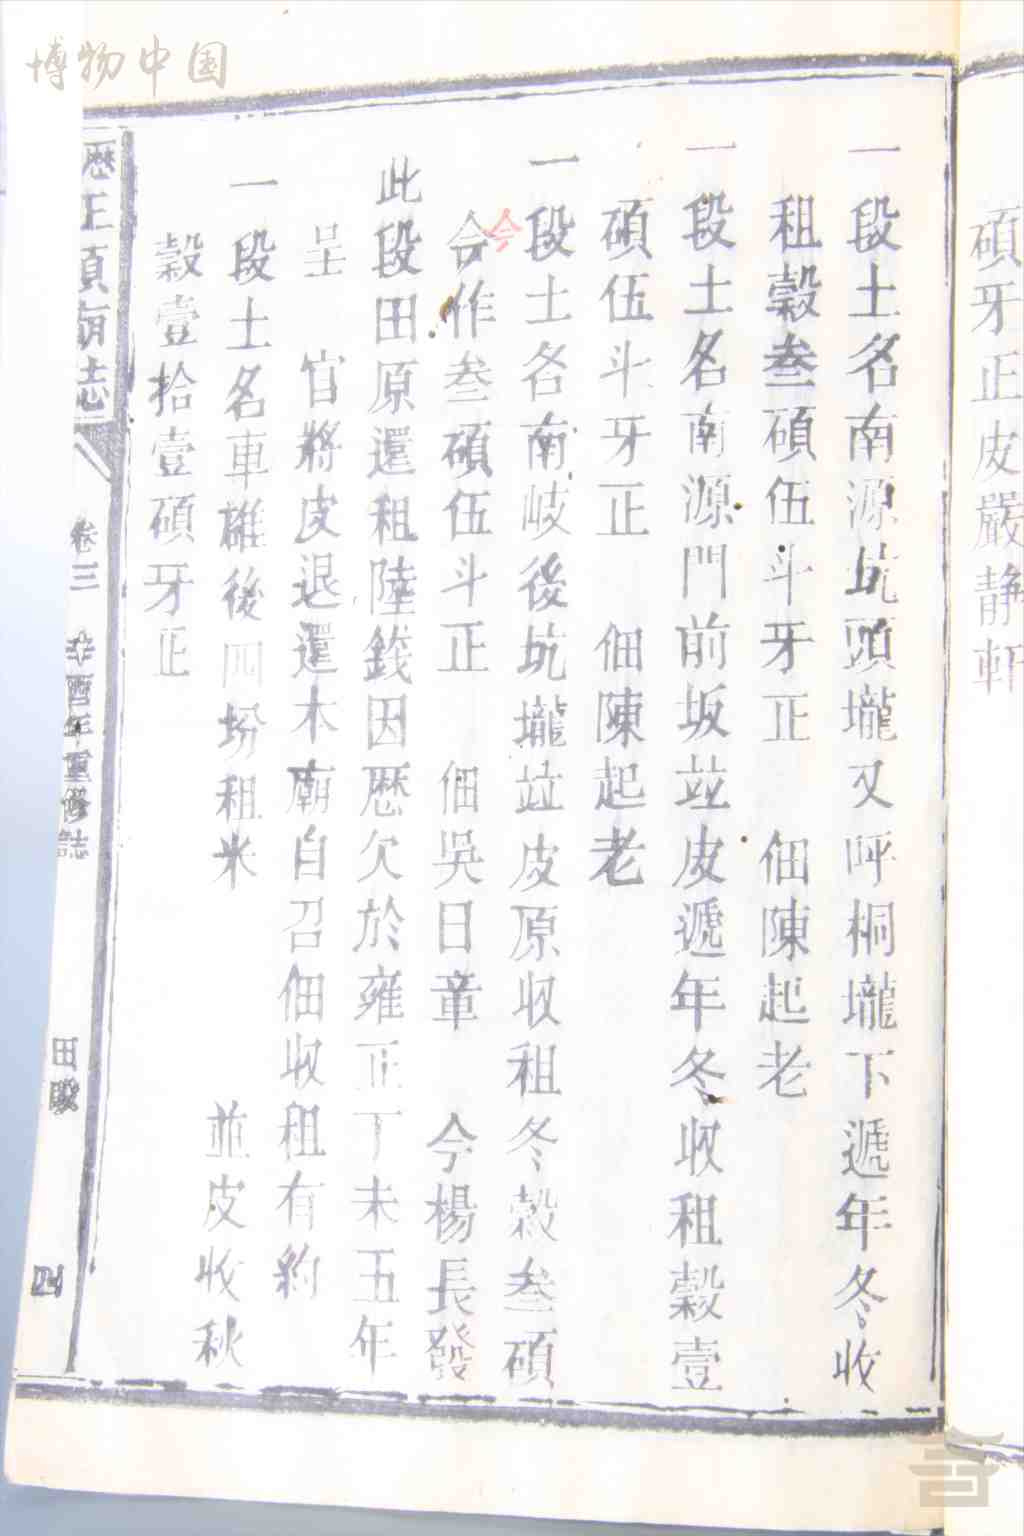 碩牙正皮嚴静軒
一段土名南源坑頭壠又呼桐壠下遞年冬收
租穀叁碩伍斗牙正 佃陳起老
一段土名南源門前坂竝皮遞年冬收租穀壹
碩伍斗牙正 佃陳起老
一段土各南岐後坑壠竝皮原收租冬穀叁碩
今
合作叁碩伍斗正 佃吳日章 今楊長發
此段田原還租陸錢因歷欠於雍正丁未五年
呈 官將皮退還本廟自召佃收租有約
一段土名車雄後四坋租米 並皮收秋
穀壹拾壹碩牙正
歷王項廟志 卷三 辛酉年重修誌 田畝 四
博物中国